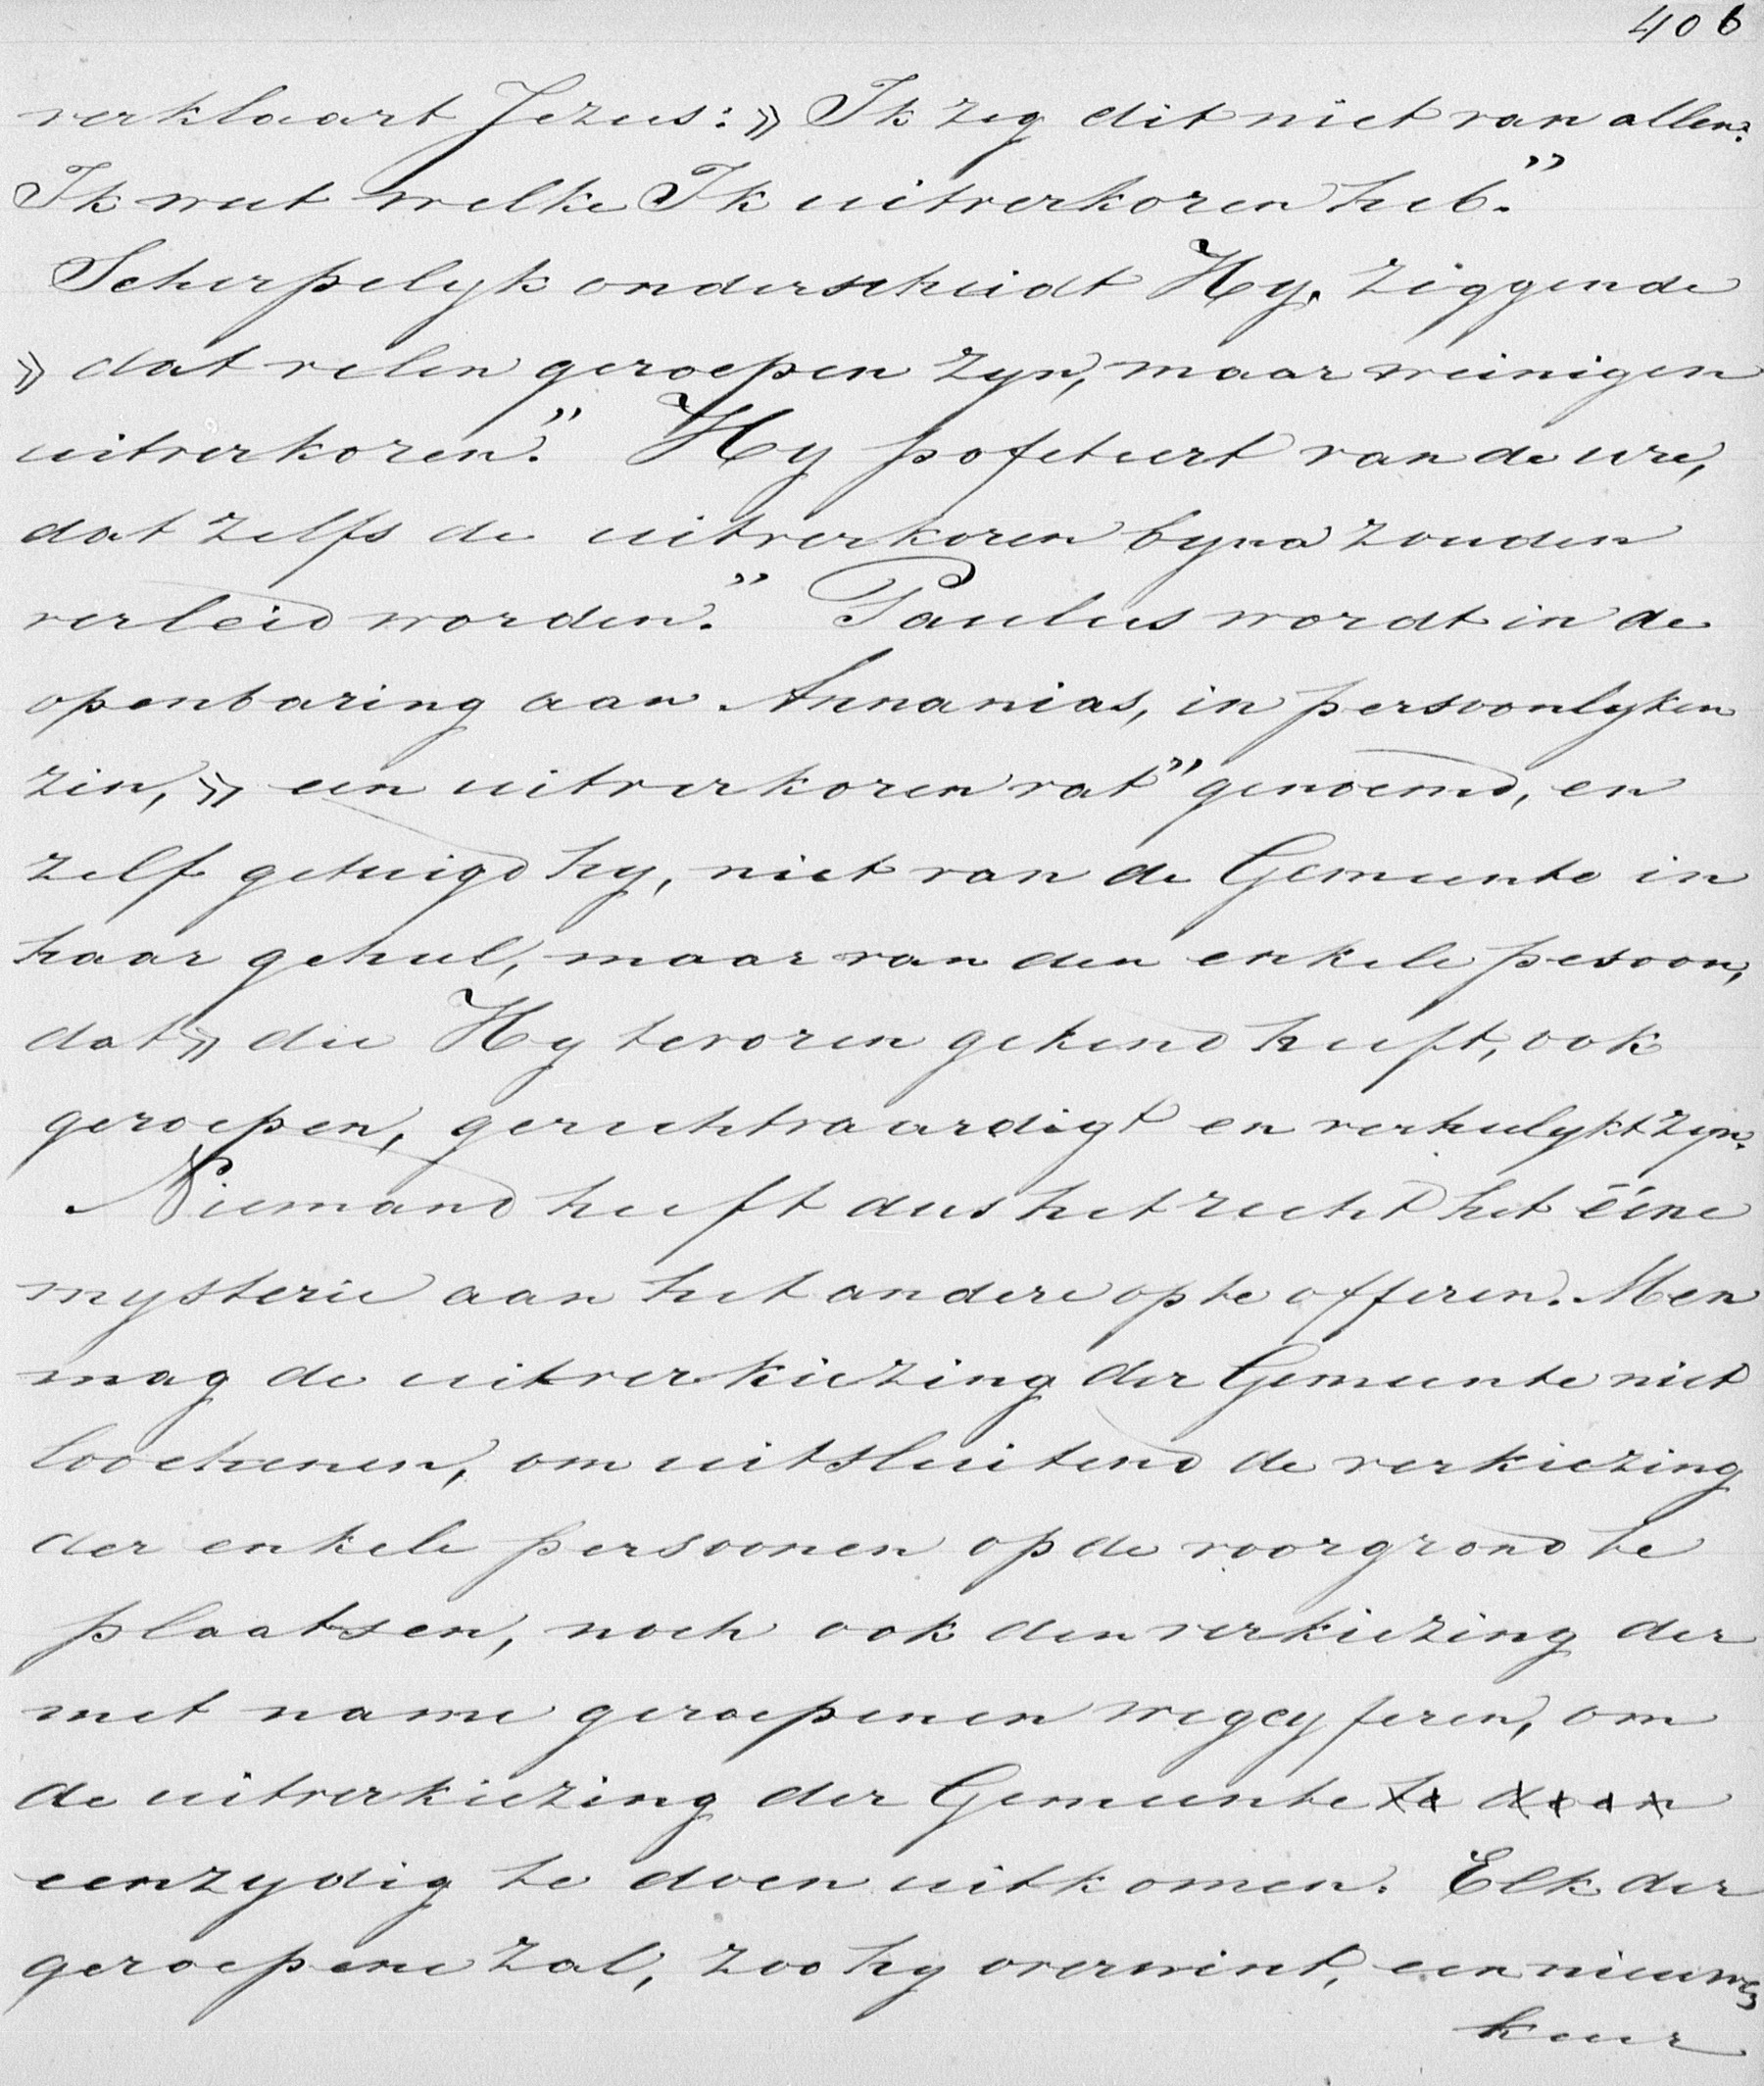 406
verklaart Jezus: » Ik zeg dit niet van allen:
Ik weet welke Ik uitverkoren heb."
Scherpelyk onderscheidt Hy, zeggende
» dat velen geroepen zyn, maar weinigen
uitverkoren." Hy pofeteert van de ure,
dat zelfs de uitverkoren byna zouden
verleid worden." Paulus wordt in de
openbaring aan Annanias, in persoonlyken
zin, » een uitverkoren vat" genoemd, en
zelf getuigd hy, niet van de Gemeente in
haar geheel, maar van den enkele pesoon,
dat » die Hy tevoren gekend heeft, ook
geroepen, gerechtvaardigt en verheelykt zyn.
Niemand heeft dus het recht het ééne
mysterie aan het andere op te offeren. Men
mag de uitverkiezing der Gemeente niet
loochenen, om uitsluitend de verkiezing
der enkele persoonen op de voorgrond te
plaatsen, noch ook den verkiezing der
met name geroepenen wegcyferen, om
de uitverkiezing der Gemeente te doen
eenzydig te doen uitkomen. Elk der
geroepene zal, zoo hy overwint, een nieuwe
keur